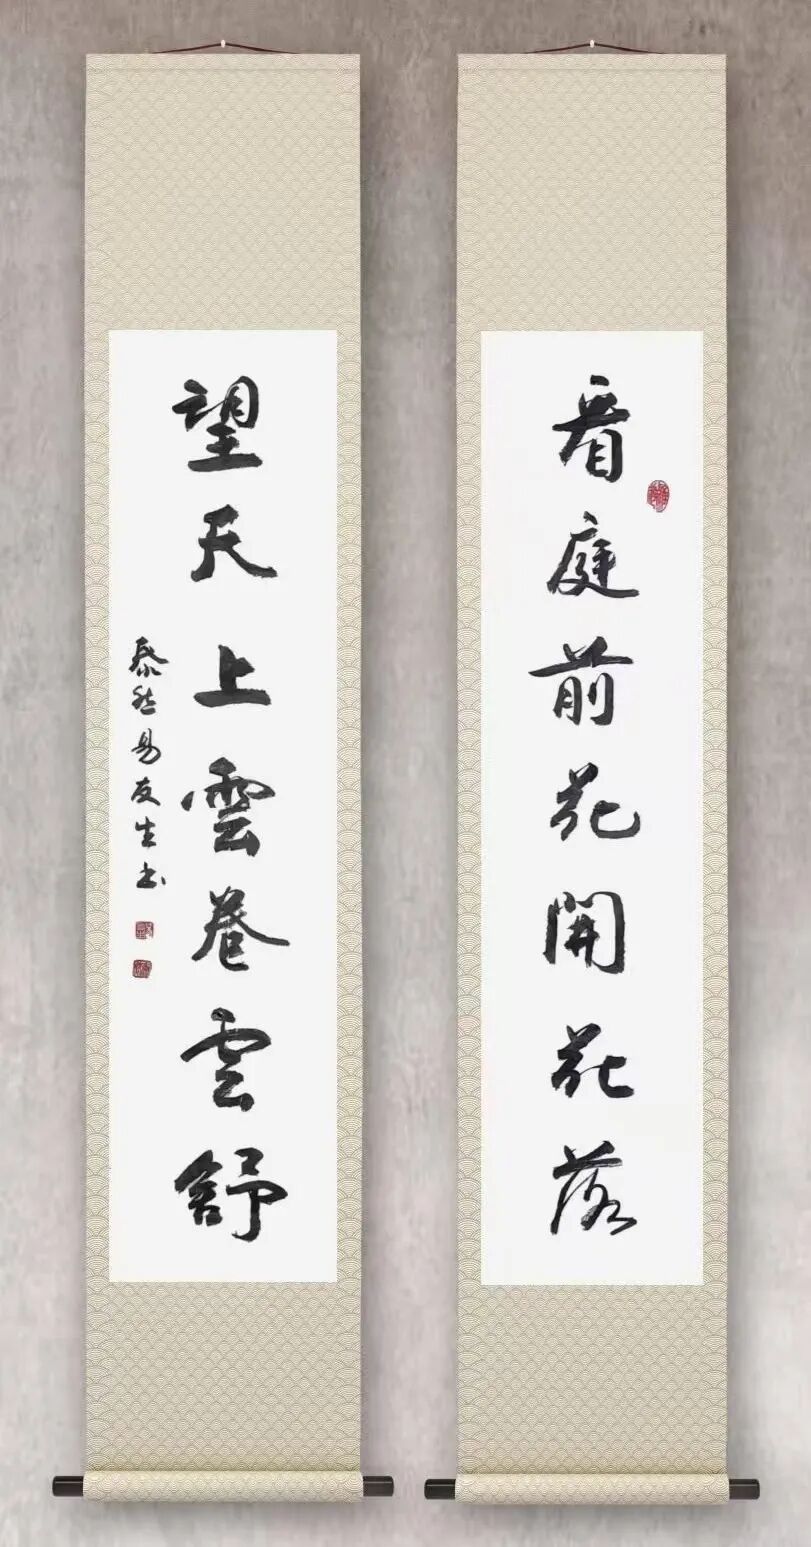 看庭前花開花落
望天上雲卷雲舒
泰然易友生书